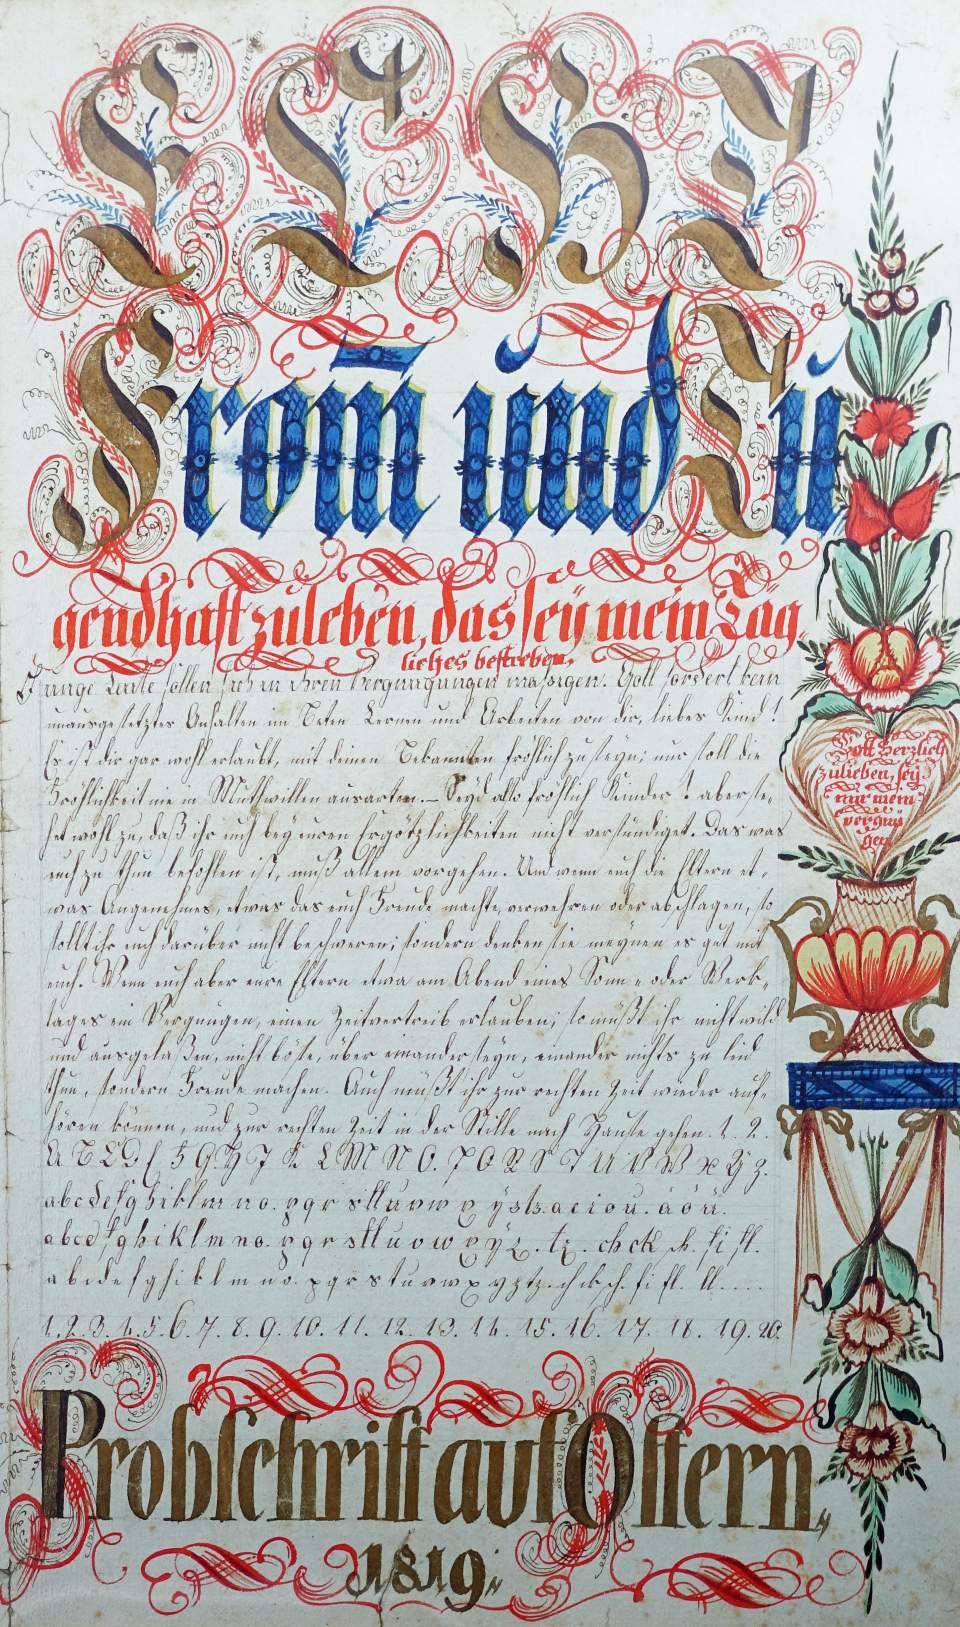 From̄ und Tu
gendhaft zuleben, das seÿ mein Täg,
liches bestreben.
Junge Leute sollen sich in ihren Vergnügungen mässigen. Gott fordert kein
unausgesetztes Anhalten im Beten Lernen und Arbeiten von dir, liebes Kind!
Es ist dir gar wohl erlaubt, mit deinen Bekannten fröhlich zu seyn; nur soll die
Fröhlichkeit nie in Muthwillen ausarten. – Seyd also fröhlich Kinder! aber se-
het wohl zu, daß ihr euch bey euren Ergötzlichkeiten nicht versündiget. Das was
euch zu thun befohlen ist, muß allem vorgehen. Und wenn euch die Eltern et-
was Angenehmes, etwas das euch Freude machte, verwehren oder abschlagen, so
sollt ihr euch darüber nicht beschweren; sondern denken sie meynen es gut mit
euch. Wenn euch aber eure Eltern etwa am Abend eines Sonn- oder Werk-
tages ein Vergnügen, einen Zeitvertreib erlauben; so müßt ihr nicht wild
und ausgelaßen, nicht böse, über einander seyn, einander nichts zu leid
thun, sondern Freude machen. Auch müßt ihr zur rechten Zeit wieder auf-
hören können, und zur rechten Zeit in der Stille nach Hause gehen. 1. 2.
A B C D E F G H J K L M N O P Q R S T U V W X Y Z.
a b c d e f g h i k l m n o. p q r s s t u v w x y z tz. a e i o u. ä ö ü.
a b c d e f g h i k l m n o. p q r s s t u v w x ÿ z. tz. ch ck sch. fi fl.
a b c d e f g h i k l m n o. p q r s t u v w x y z tz. ch ck sch. fi fl. ll....
1. 2. 3. 4. 5. 6. 7. 8. 9. 10. 11. 12. 13. 14. 15. 16. 17. 18. 19. 20.
Probschrift auf Ostern
1819
Gott Herzlich
zulieben, seÿ
nur mein
vergnü
gen.